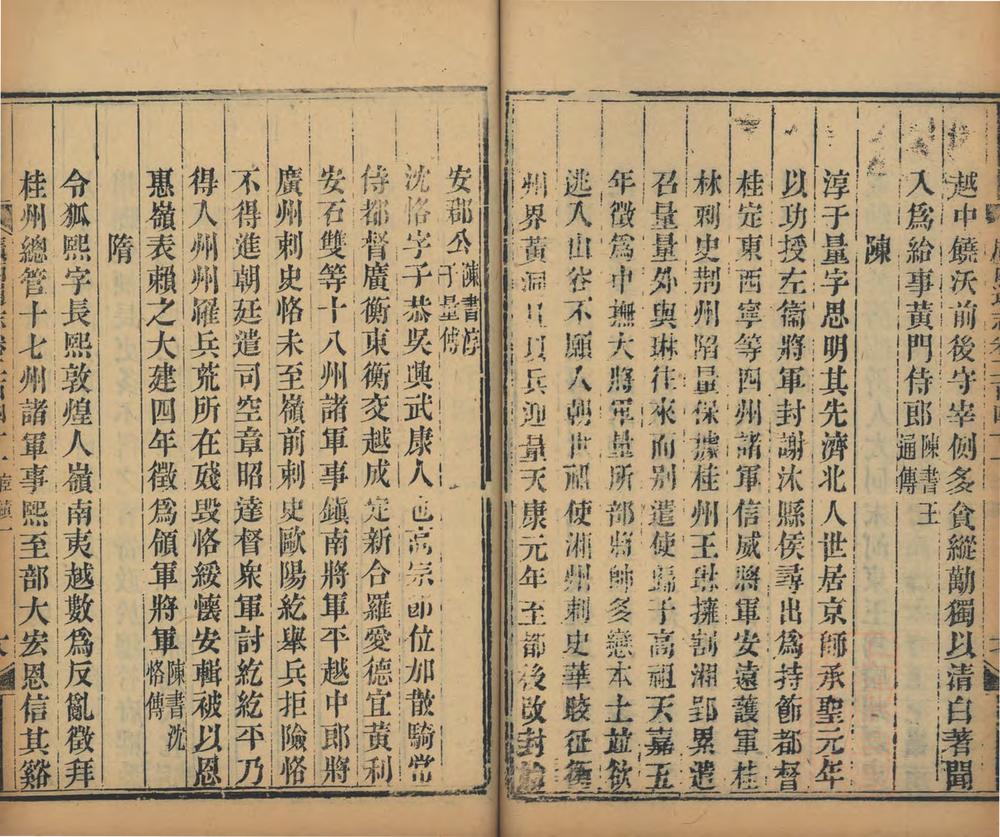 越中饒沃前後守宰例多貪縱勱獨以清白著聞
入爲給事黃門侍郎陳書王通傳
陳
淳于量字思明其先濟北人世居京師承聖元年
以功授左衞將軍封謝沐縣侯尋出爲持節都督
桂定東西寧等四州諸軍信威將軍安遠護軍桂
林刺史荆州陷量保據桂州王琳擁割湘郢累遣
召量量外與琳往來而别遣使歸于高祖天嘉五
年徵爲中撫大將軍量所部將帥多戀本土並欲
逃入山谷不願入朝世祖使湘州刺史華皎征衡
州界黃洞且以兵迎量天康元年至都後改封
安郡公陳書淳于量傳
沈恪字子恭吳興武康人也高宗即位加散騎常
侍都督廣衡東衡交越成定新合羅愛德宜黃利
安石雙等十八州諸軍事鎭南將軍平越中郎將
廣州刺史恪未至嶺前刺史歐陽紇舉兵拒險恪
不得進朝廷遣司空章昭達督衆軍討紇紇平乃
得入州州罹兵荒所在殘毀恪綏懷安輯被以恩
惠嶺表賴之大建四年徵爲領軍將軍陳書沈恪傳
隋
令狐熙字長熙敦煌人嶺南夷越數爲反亂徵拜
桂州總管十七州諸軍事熙至部大宏恩信其谿